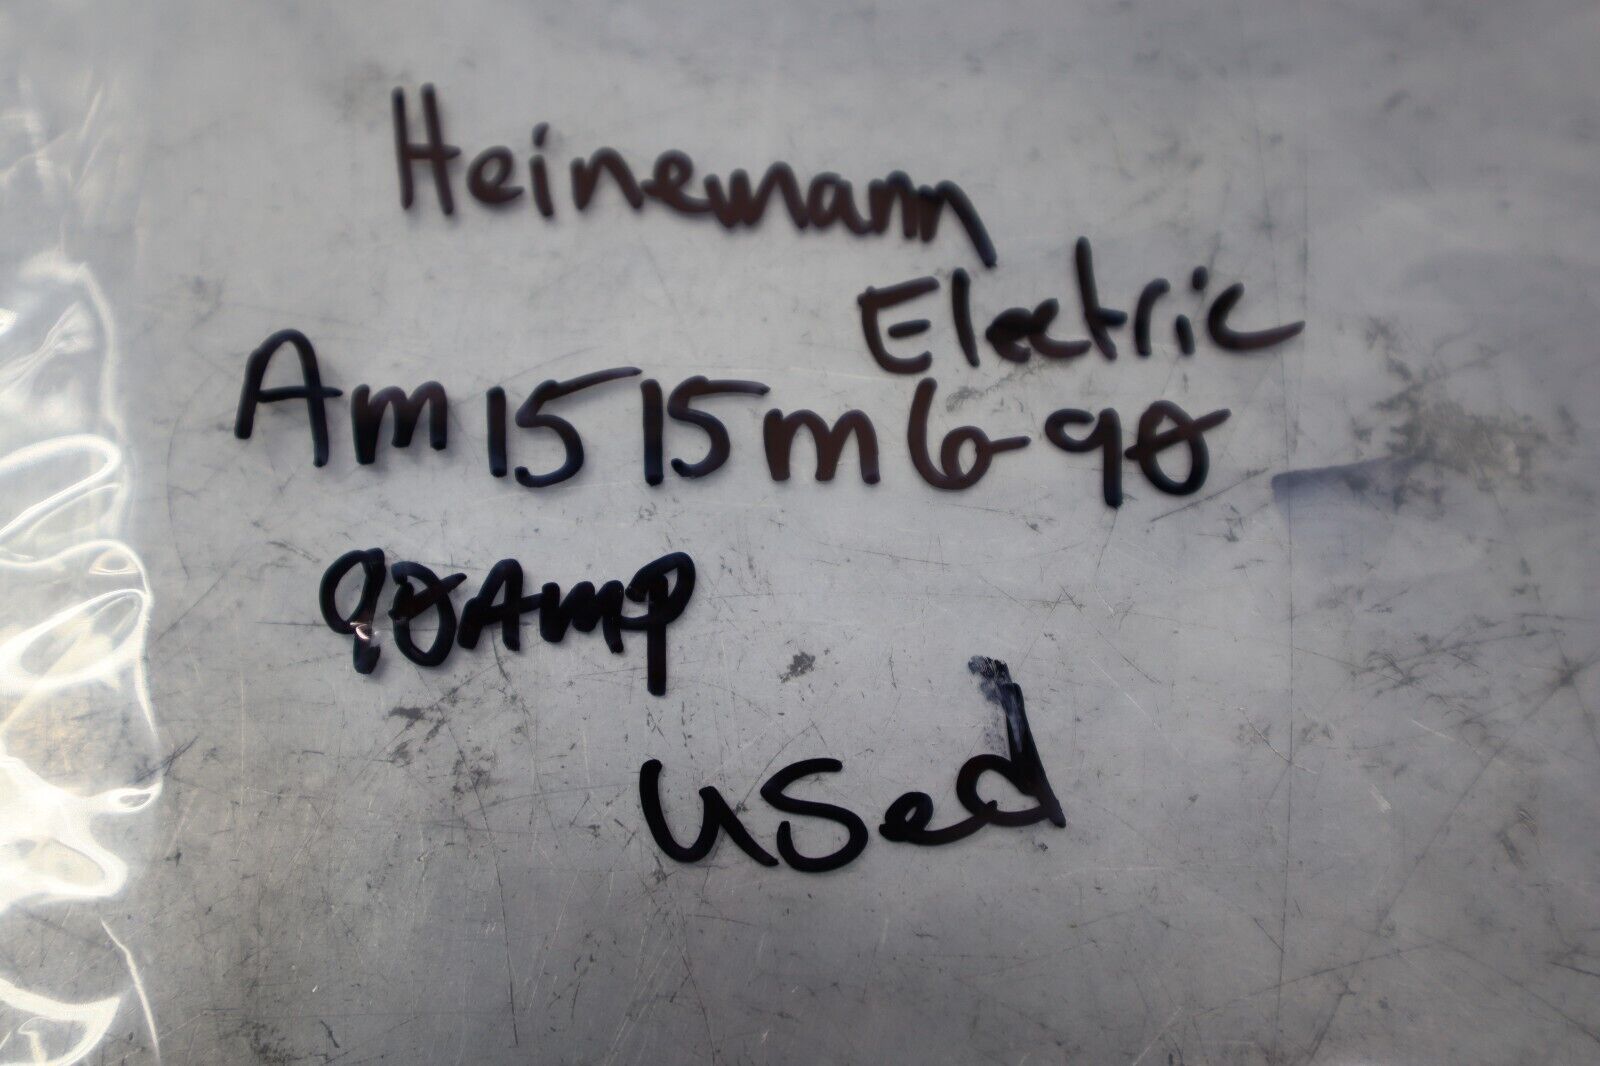 Heinemann
Electric
Am1515m6-90
90Amp
used